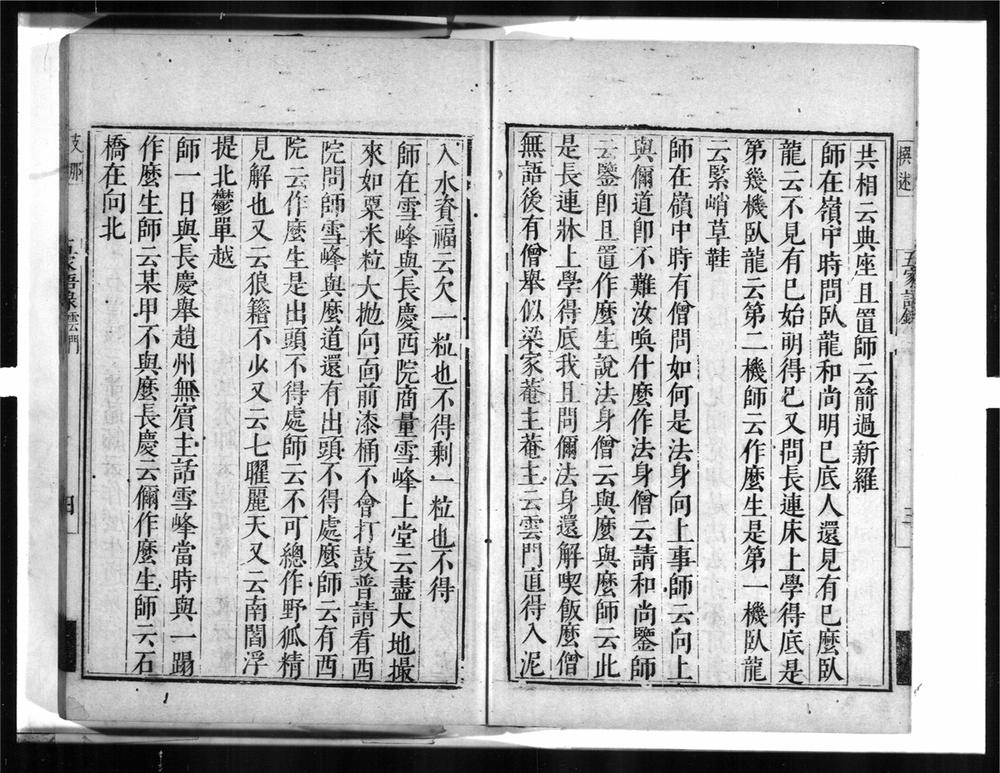 撰述
五家語錄
共相云典座且置師云箭過新羅
師在嶺中時問臥龍和尚明已底人還見有已麼臥
龍云不見有已始明得已又問長連床上學得底是
第幾機臥龍云第二機師云作麼生是第一機臥龍
云緊峭草鞋
師在嶺中時有僧問如何是法身向上事師云向上
與儞道卽不難汝喚什麼作法身僧云請和尚鑒師
云鑒卽且置作麼生說法身僧云與麼與麼師云此
是長連牀上學得底我且問儞法身還解喫飯麼僧
無語後有僧舉似梁家菴主菴主云雲門直得入泥
入水資福云欠一粒也不得剩一粒也不得
師在雪峰與長慶西院商量雪峰上堂云盡大地撮
來如粟米粒大拋向面前漆桶不會打鼓普請看西
院問師雪峰與麼道還有出頭不得處麼師云有西
院云作麼生是出頭不得處師云不可總作野狐精
見解也又云狼籍不少又云七曜麗天又云南閻浮
提北鬱單越
師一日與長慶舉趙州無賓主話雪峰當時與一蹋
作麼生師云某甲不與麼長慶云儞作麼生師云石
橋在向北
支那
五家語錄雲門
四